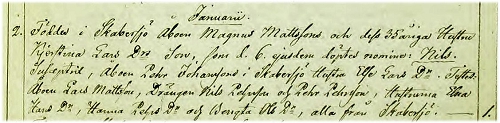 Januarii.
2. Föddes i Skabersjö Aboen Magnus Mattssons och dess 35 åriga Hustru
Kjerstina Lars Drs Son, som d. 6. ejusdem döptes nomine: Nils.
Susceptrix, Aboen Pehr Johanssons i Skabersjö Hustru Else Lars Dr. Testes:
Aboen Lars Mattsson, Drängen Nils Pehrsson och Pehr Pehrsson, Hustrurna Elna
Hans Dr, Hanna Pehrs Dr och Bengta Ols Dr, alla från Skabersjö. — 1.